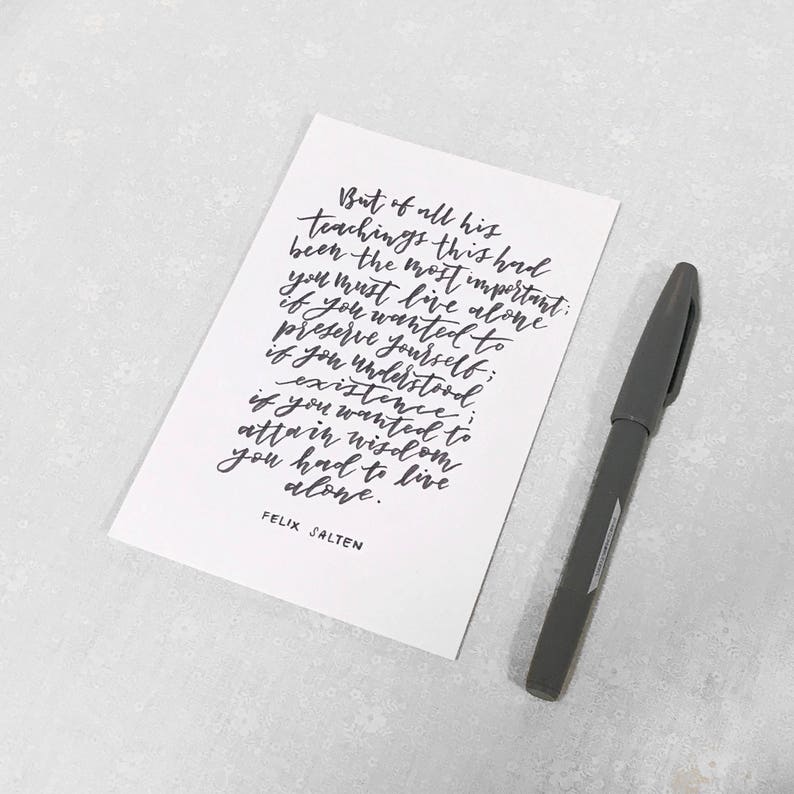 But of all his
teachings this had
been the most important;
you must live alone
if you wanted to
preserve yourself;
if you understood
existence;
if you wanted to
attain wisdom
you had to live
alone.
FELIX SALTEN